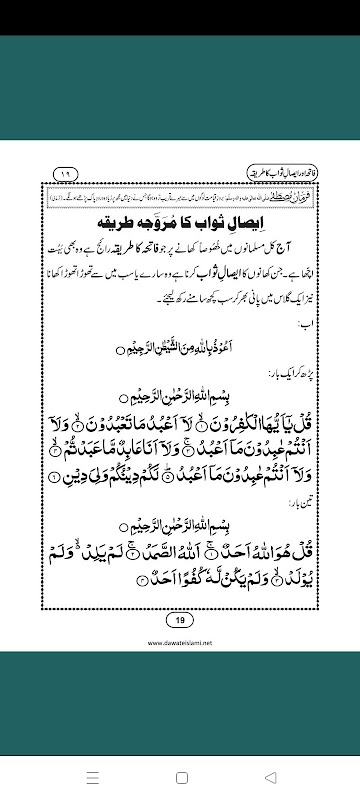 فاتحہ اور ایصالِ ثواب کا طریقہ
۱۹
فرمانِ مصطفٰے
ایصالِ ثواب کا مُرَوَّجہ طریقہ
آج کل مسلمانوں میں خُصُوصاً کھانے پر جو فاتحہ کا طریقہ رائج ہے وہ بھی بَہُت
اچھا ہے۔ جن کھانوں کا ایصالِ ثواب کرنا ہے وہ سارے یا سب میں سے تھوڑا تھوڑا کھانا
نیز ایک گلاس میں پانی بھر کر سب کچھ سامنے رکھ لیجئے۔
اب:
اَعُوْذُ بِاللّٰہِ مِنَ الشَّیْطٰنِ الرَّجِیْمِ ○
پڑھ کر ایک بار:
بِسْمِ اللّٰہِ الرَّحْمٰنِ الرَّحِیْمِ ○
قُلْ یٰۤاَیُّهَا الْكٰفِرُوْنَ ۙ﴿۱﴾ لَاۤ اَعْبُدُ مَا تَعْبُدُوْنَ ۙ﴿۲﴾ وَ لَاۤ
اَنْتُمْ عٰبِدُوْنَ مَاۤ اَعْبُدُ ۚ﴿۳﴾ وَ لَاۤ اَنَا عَابِدٌ مَّا عَبَدْتُّمْ ۙ﴿۴﴾
وَ لَاۤ اَنْتُمْ عٰبِدُوْنَ مَاۤ اَعْبُدُ ؕ﴿۵﴾ لَكُمْ دِیْنُكُمْ وَلِیَ دِیْنِ ﴿۶﴾
تین بار:
بِسْمِ اللّٰہِ الرَّحْمٰنِ الرَّحِیْمِ ○
قُلْ هُوَ اللّٰهُ اَحَدٌ ۚ﴿۱﴾ اَللّٰهُ الصَّمَدُ ۚ﴿۲﴾ لَمْ یَلِدْ ۙ۬ وَ لَمْ
یُوْلَدْ ۙ﴿۳﴾ وَ لَمْ یَكُنْ لَّهٗ كُفُوًا اَحَدٌ ﴿۴﴾
19
www.dawateislami.net